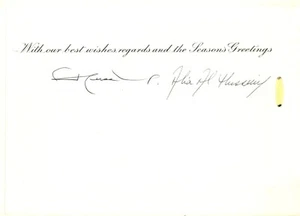 With our best wishes regards and the Seasons Greetings
Alia Al Hussein